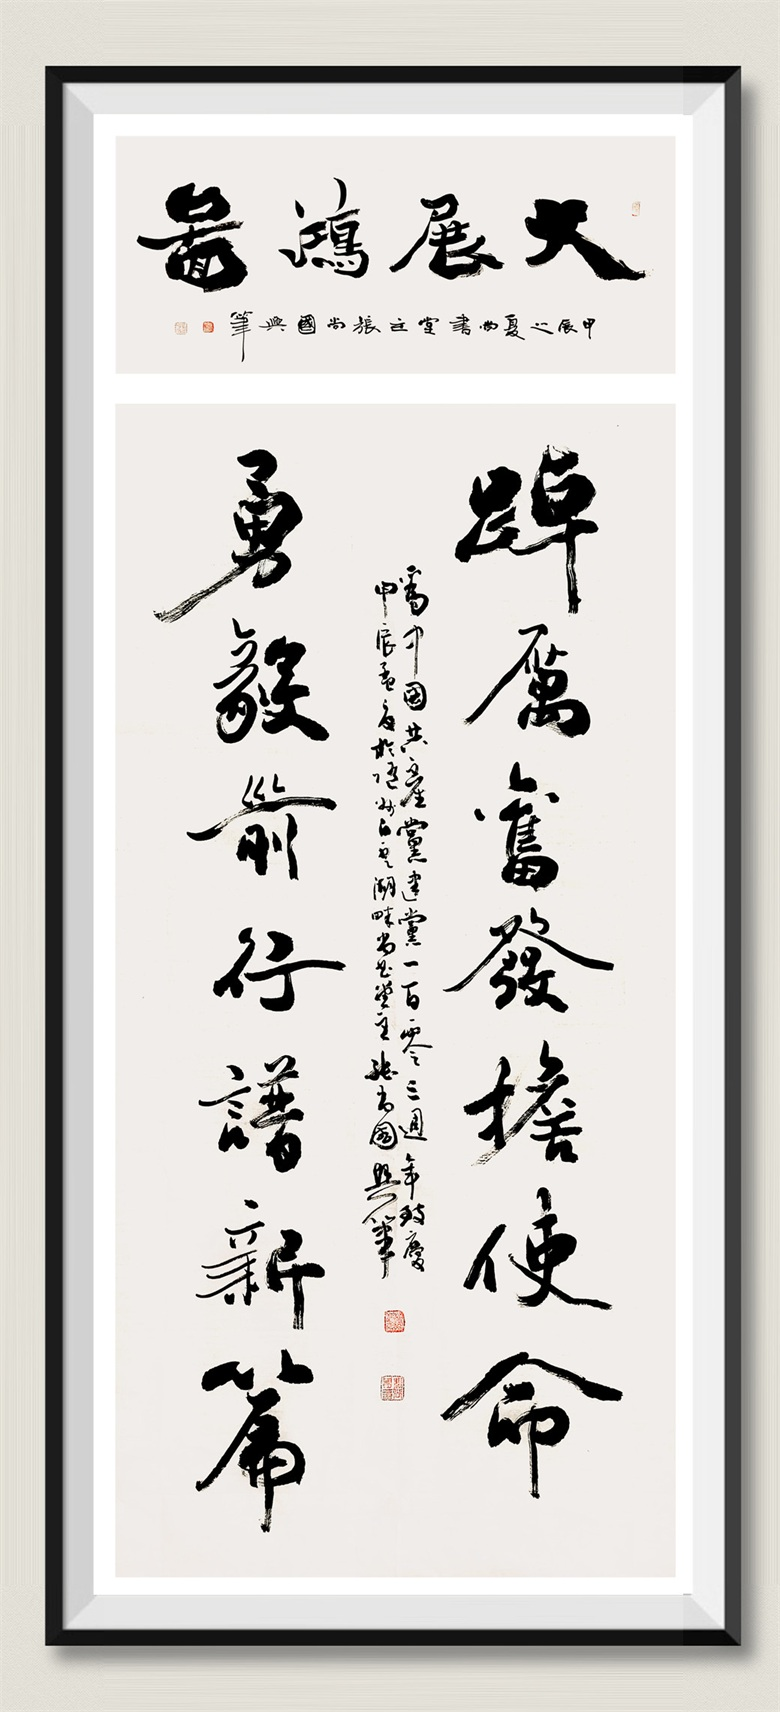 大展鴻啚
甲辰之夏尚書堂主張尚國興筆
踔厲奮發擔使命
爲中国共產黨建黨一百零三週年致慶
甲辰孟夏於隨州白雲湖畔尚書堂主張尚國興筆
勇毅前行譜新篇